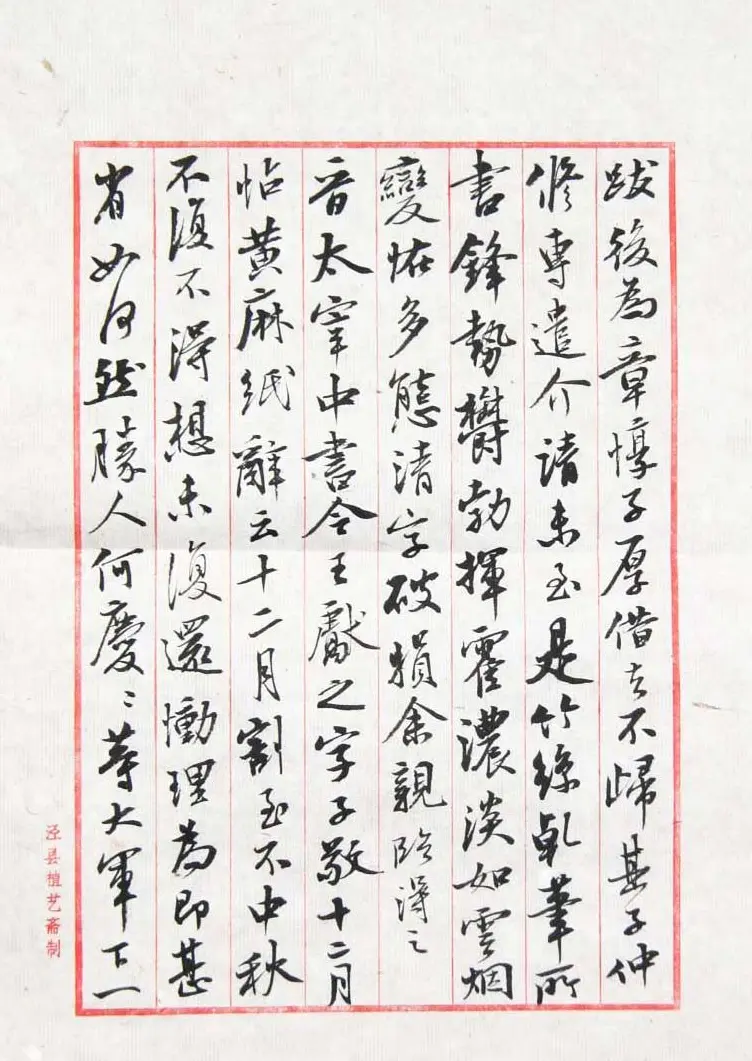 跋後為章惇子厚借去不歸其子仲
修專遣介請未至是竹絲乹筆所
書鋒勢欝勃揮霍濃淡如雲烟
變恠多態清字破損余親臨得之
晋太宰中書令王獻之字子敬十二月
帖黄麻紙辭云十二月割至不中秋
不復不得想未復還慟理為即甚
省如何然勝人何慶〻等大軍
泾县植艺斋制